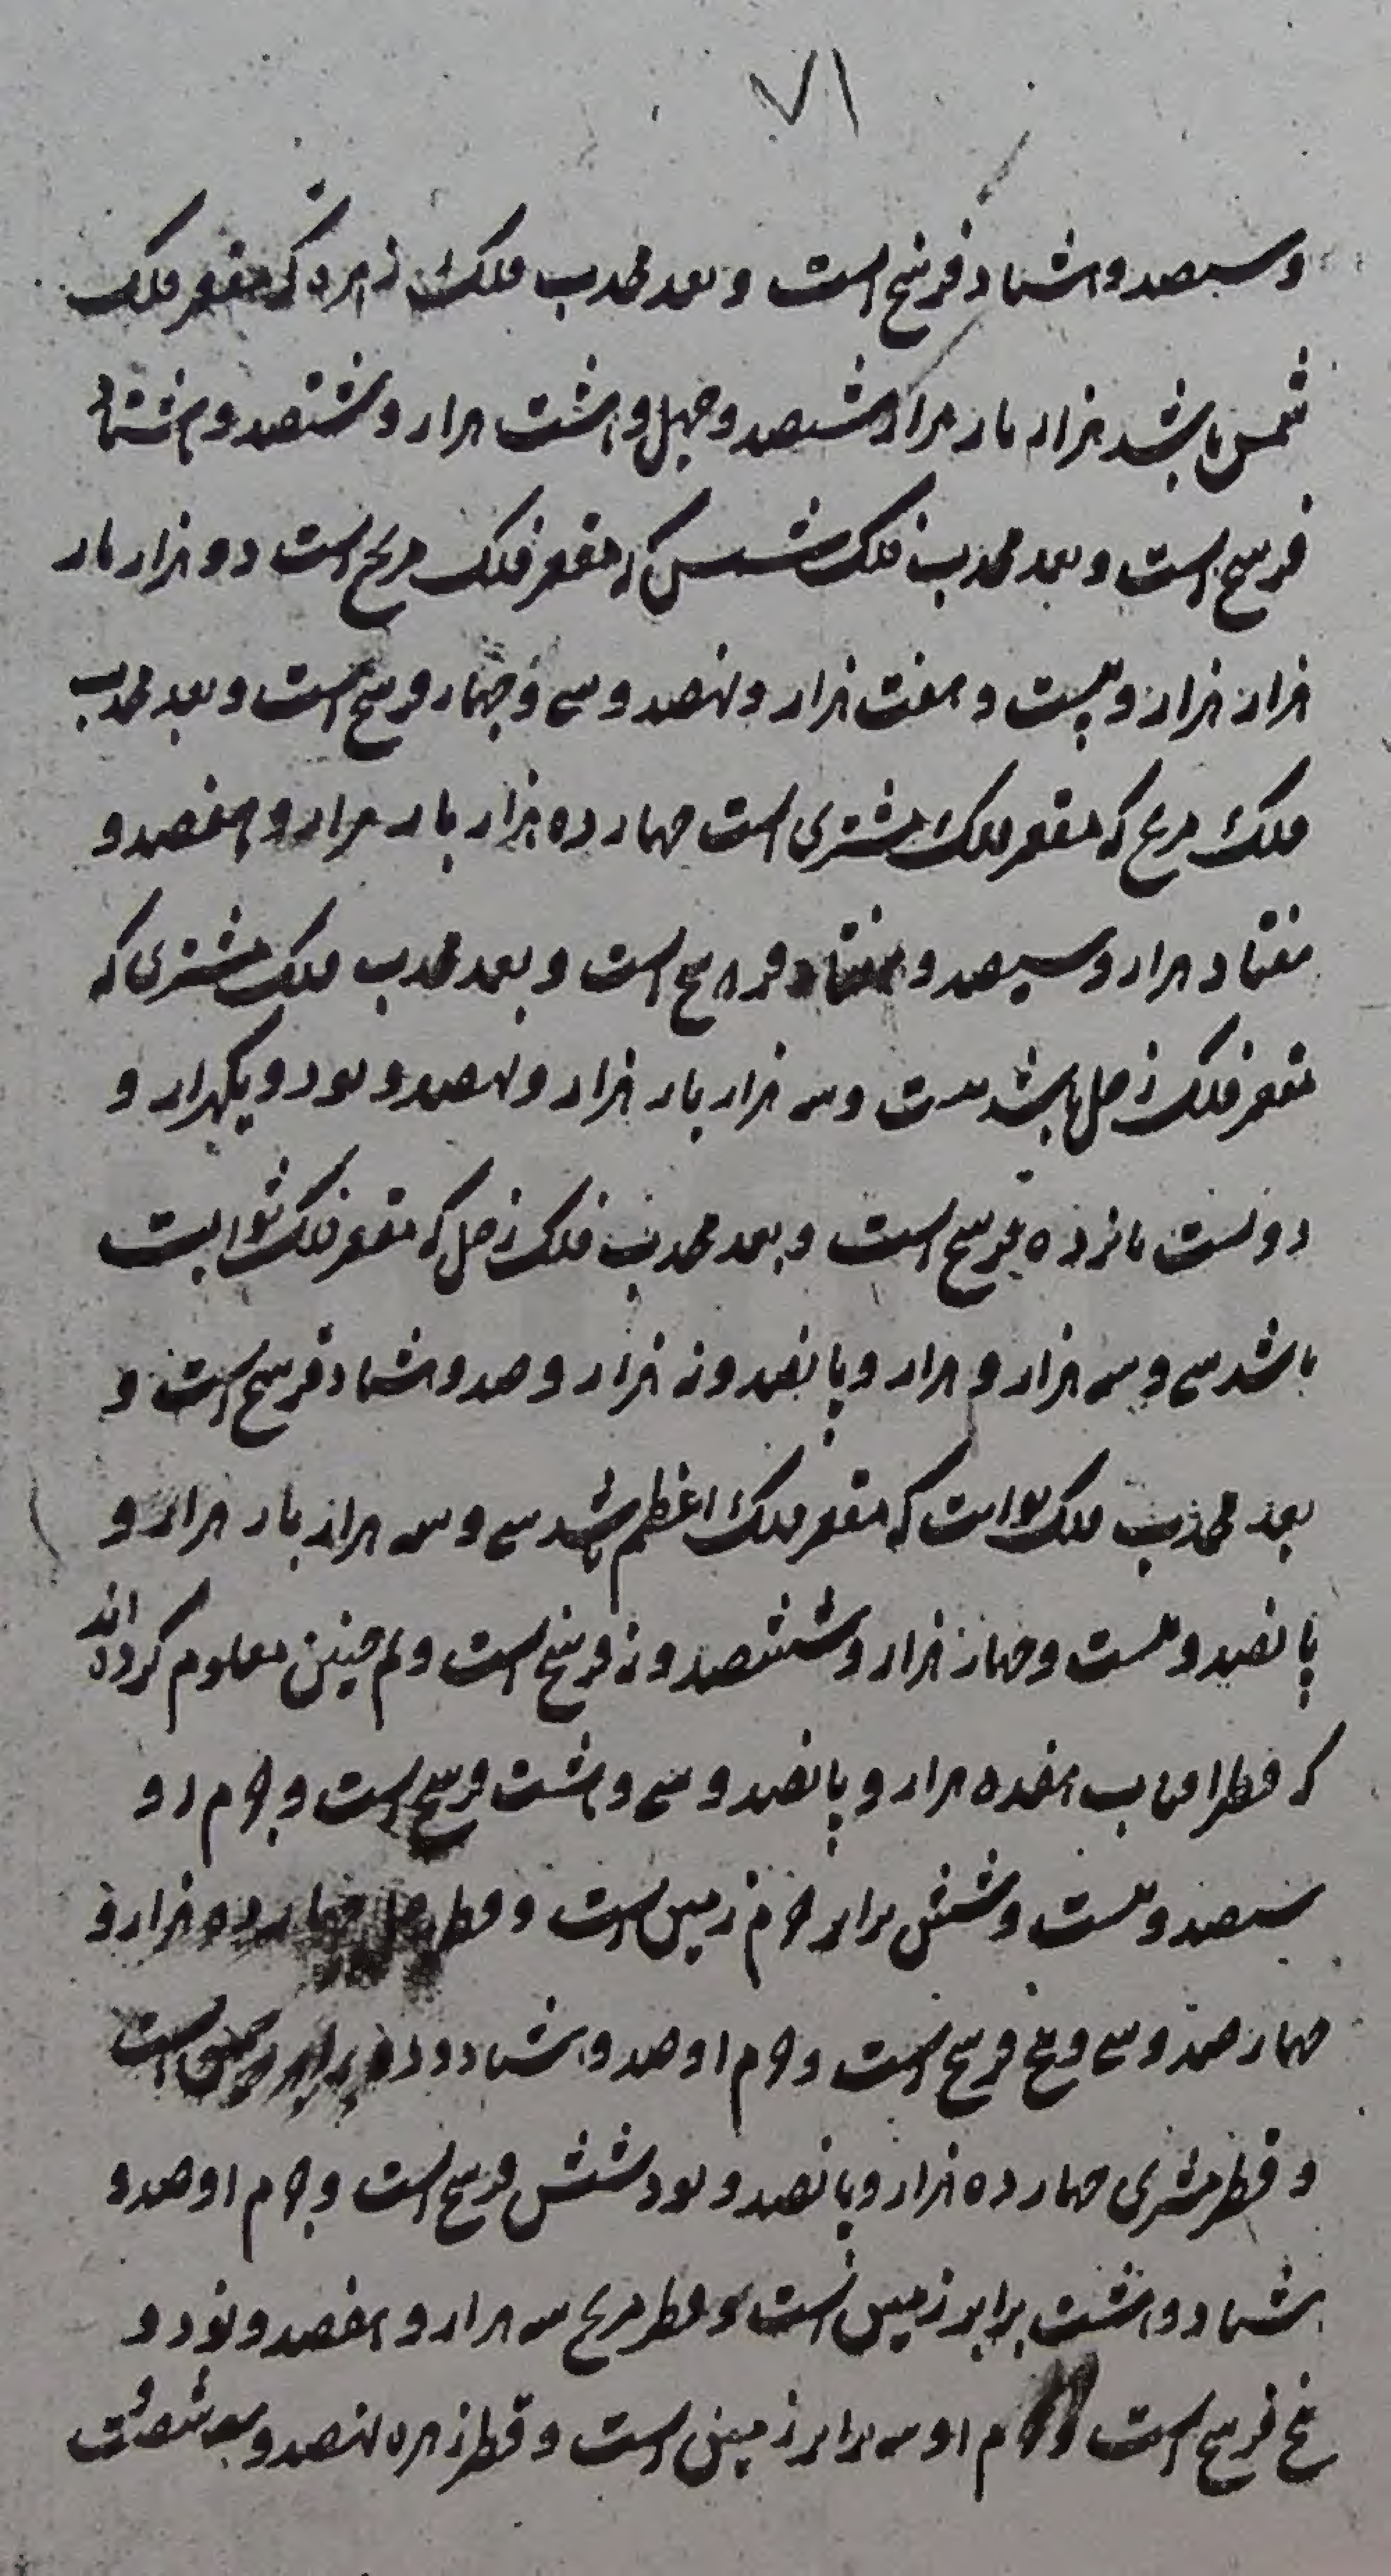 ۷۱
و سیصد و هشتاد فرسخ است و بعد محدب فلک زهره که مقعر فلک
شمس باشد هزار بار هزار و هشتصد و چهل و هشت هزار و ششصد و هشتاد
فرسخ است و بعد محدب فلک شمس که مقعر فلک مریخ است دو هزار بار
هزار هزار و بیست و هفت هزار و نهصد و سی و چهار فرسخ است و بعد محدب
فلک مریخ که مقعر فلک مشتری است چهارده هزار بار هزار و هفصد و
هفتاد هزار و سیصد و هفتاد فرسخ است و بعد محدب فلک مشتری که
مقعر فلک زحل باشد بیست و سه هزار بار هزار و نهصد و نود و یکهزار و
دویست پانزده فرسخ است و بعد محدب فلک زحل که مقعر فلک ثوابت
باشد سی و سه هزار و هزار و پانصد و نه هزار و صد و هشتاد فرسخ است و
بعد محدب فلک ثوابت که مقعر فلک اعظم باشد سی و سه هزار بار هزار و
پانصد و بیست و چهار هزار و ششصد و نه فرسخ است و هم چنین معلوم کرده اند
که قطر آفتاب هفده هزار و پانصد و سی و هشت فرسخ است و جرم او
سیصد و بیست و شش برابر جرم زمین است و قطر زحل چهارده هزار و
چهارصد و سی و پنج فرسخ است و جرم او صد و هشتاد و دو برابر زمین است
و قطر مشتری چهارده هزار و پانصد و نود شش فرسخ است و جرم او صد و
هشتاد و هشت برابر زمین است و قطر مریخ سه هزار و هفصد و نود و
پنج فرسخ است و جرم او سه برابر زمین است و قطر زهره نهصد و